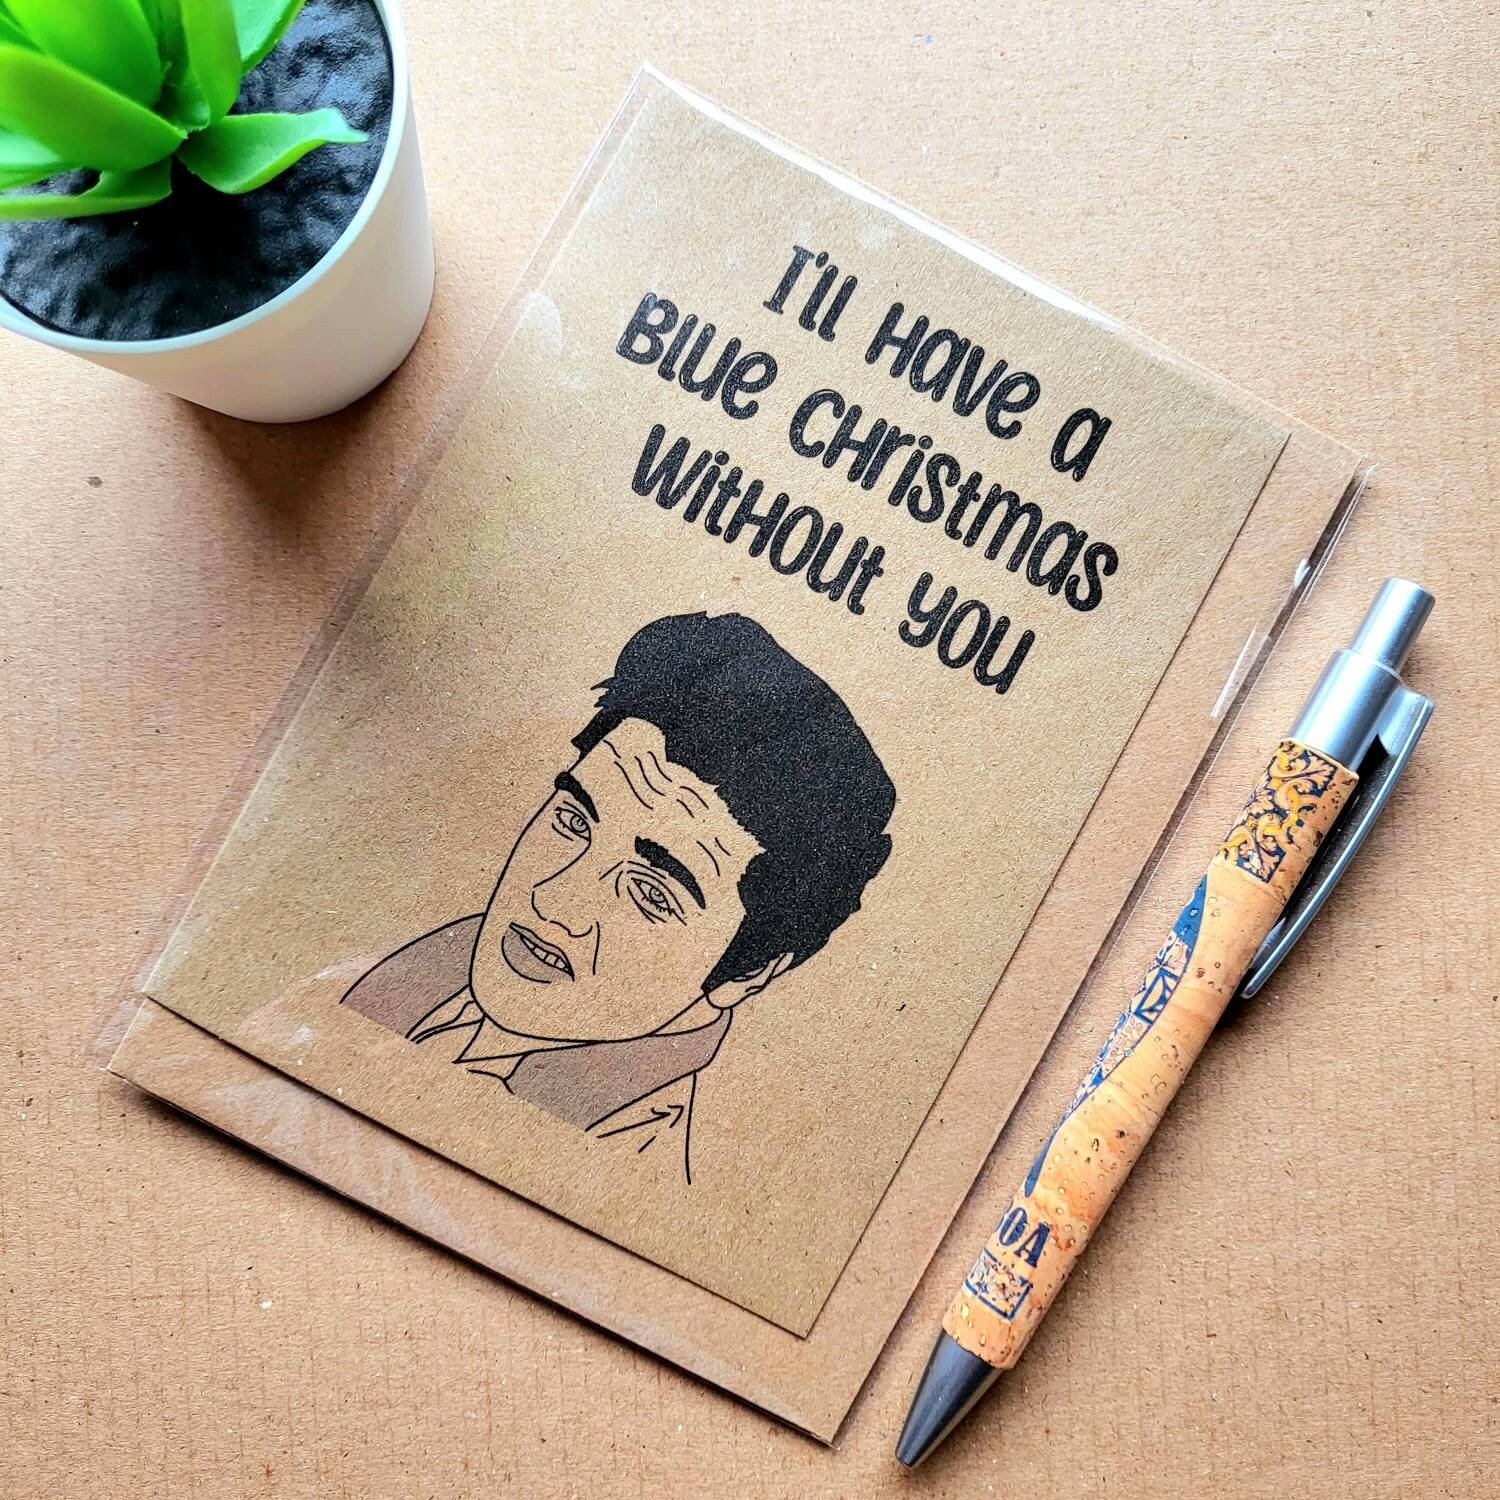 I'll Have a
Blue Christmas
Without you